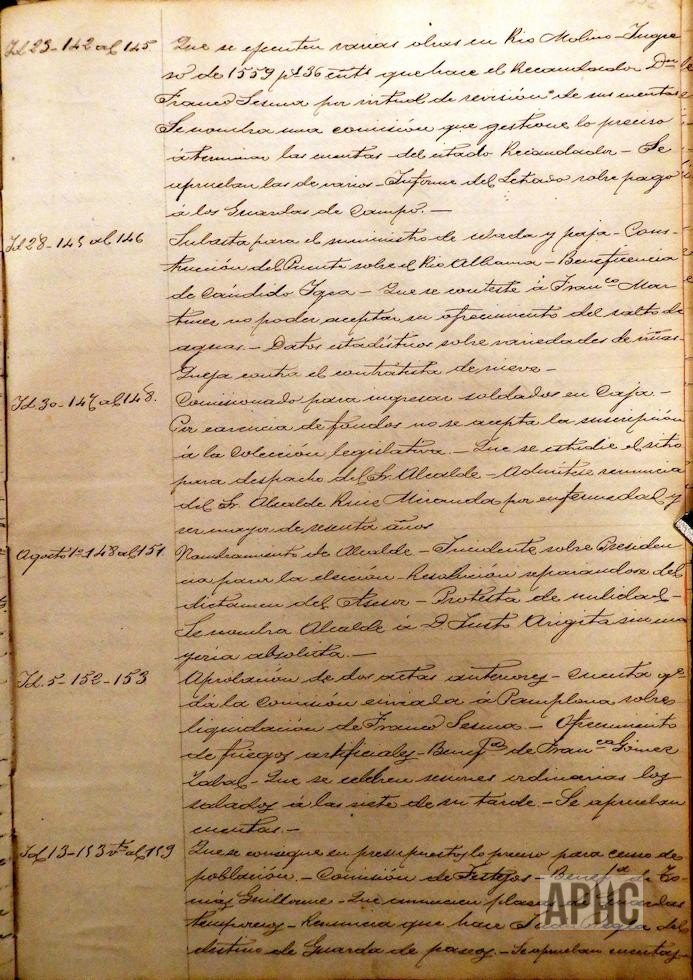 Id 23-142 al 145 Que se ejecuten varias obras en Rio Molino - Ingre-
so de 1559 pts 36 cents que hace el Recaudador Dn
Franco Sesma por virtud de revisión de sus cuentas
Se nombra una comisión que gestione lo preciso
á terminar las cuentas del citado Recaudador - Se
aprueban las de varios - Informe del Letrado sobre pago
á los Guardas de Campo. -
Id 28-145 al 146 Subasta para el suministro de cebada y paja - Cons-
trucción del Puente sobre el Rio Alhama - Beneficencia
de Cándido - Que se conteste á Franco Mar-
tinez no poder aceptar su ofrecimiento del salto de
aguas - Datos estadísticos sobre variedades de viñas
Queja contra el contratista de nieve -
Id. 30-147 al 148. Comisionado para ingresar soldados en Caja -
Por carencia de fondos no se acepta la suscripción
á la Colección legislativa. - Que se estudie el sitio
para despacho del Sr. Alcalde - Admítese renuncia
del Sr. Alcalde Ruiz Miranda por enfermedad y
ser mayor de sesenta años
Agosto 1º-148 al 151 Nombramiento de Alcalde - Incidente sobre Presiden-
cia para la elección - Resolución separandose del
dictamen del Asesor - Protesta de nulidad -
Se nombra Alcalde á D. Justo Arigita sin ma
yoria absoluta. -
Id. 5-152-153 Aprobación de dos actas anteriores - Cuenta qe
dá la comisión enviada á Pamplona sobre
liquidación de Franco Sesma - Ofrecimiento
de fuegos artificiales - Benefca de Franca Gómez
Zabal - Que se celebren sesiones ordinarias los
sabados á las siete de su tarde - Se aprueban
cuentas. -
Id 13-153 vto al 159 Que se consigne en presupuesto lo preciso para censo de
población - Comisión de Festejos - de To-
más Guillorme - Que anuncien plazas de Guardas
temporeros - Renuncia que hace del
destino de Guarda de paseos - Se aprueban cuentas -
APHC